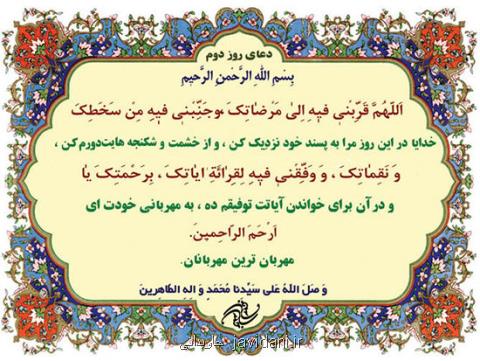 دعای روز دوم
بِسْمِ اللهِ الرَّحْمنِ الرَّحیمِ
اَللّهُمَّ قَرِّبْنی فیهِ اِلیٰ مَرْضاتِکَ ،وجَنِّبْنی فیهِ مِنْ سَخَطِکَ
خدایا در این روز مرا به پسند خود نزدیک کن ، و از خشمت و شکنجه هایت‌دورم‌کن ،
وَ نَقِماتِکَ ، وَ وَفِّقْنی فیهِ لِقِرائَةِ ایاتِکَ ، بِرَحْمَتِکَ یا
و در آن برای خواندن آیاتت توفیقم ده ، به مهربانی خودت ای
اَرْحَمَ الرّاحِمینَ.
مهربان ترین مهربانان.
وَ صَلَ اللهُ عَلی سَیِّدنا مُحَمَدٍ وَ الِهِ الطّاهِرینَ
جاویدانی javidani.ir